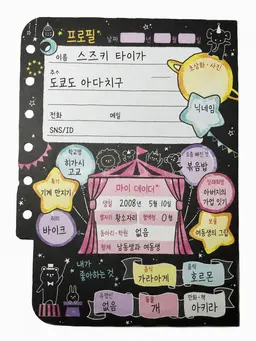 프로필
날짜
이름 스즈키 타이가
주소
도쿄도 아다치구
전화 메일
SNS/ID
초상화·사진
닉네임
학교명
히가시 고교
특기
기계 만지기
취미
바이크
마이 데이터
생일 2008년 5월 10일
별자리 황소자리 혈액형 O형
동아리·학원 없음
형제 남동생과 여동생
요즘 빠진 것
볶음밥
장래희망
아버지의
가업 잇기
보물
여동생의 그림
내가
좋아하는 것
음식
가라아게
음식
호르몬
유명인
없음
동물
개
만화·책
아키라